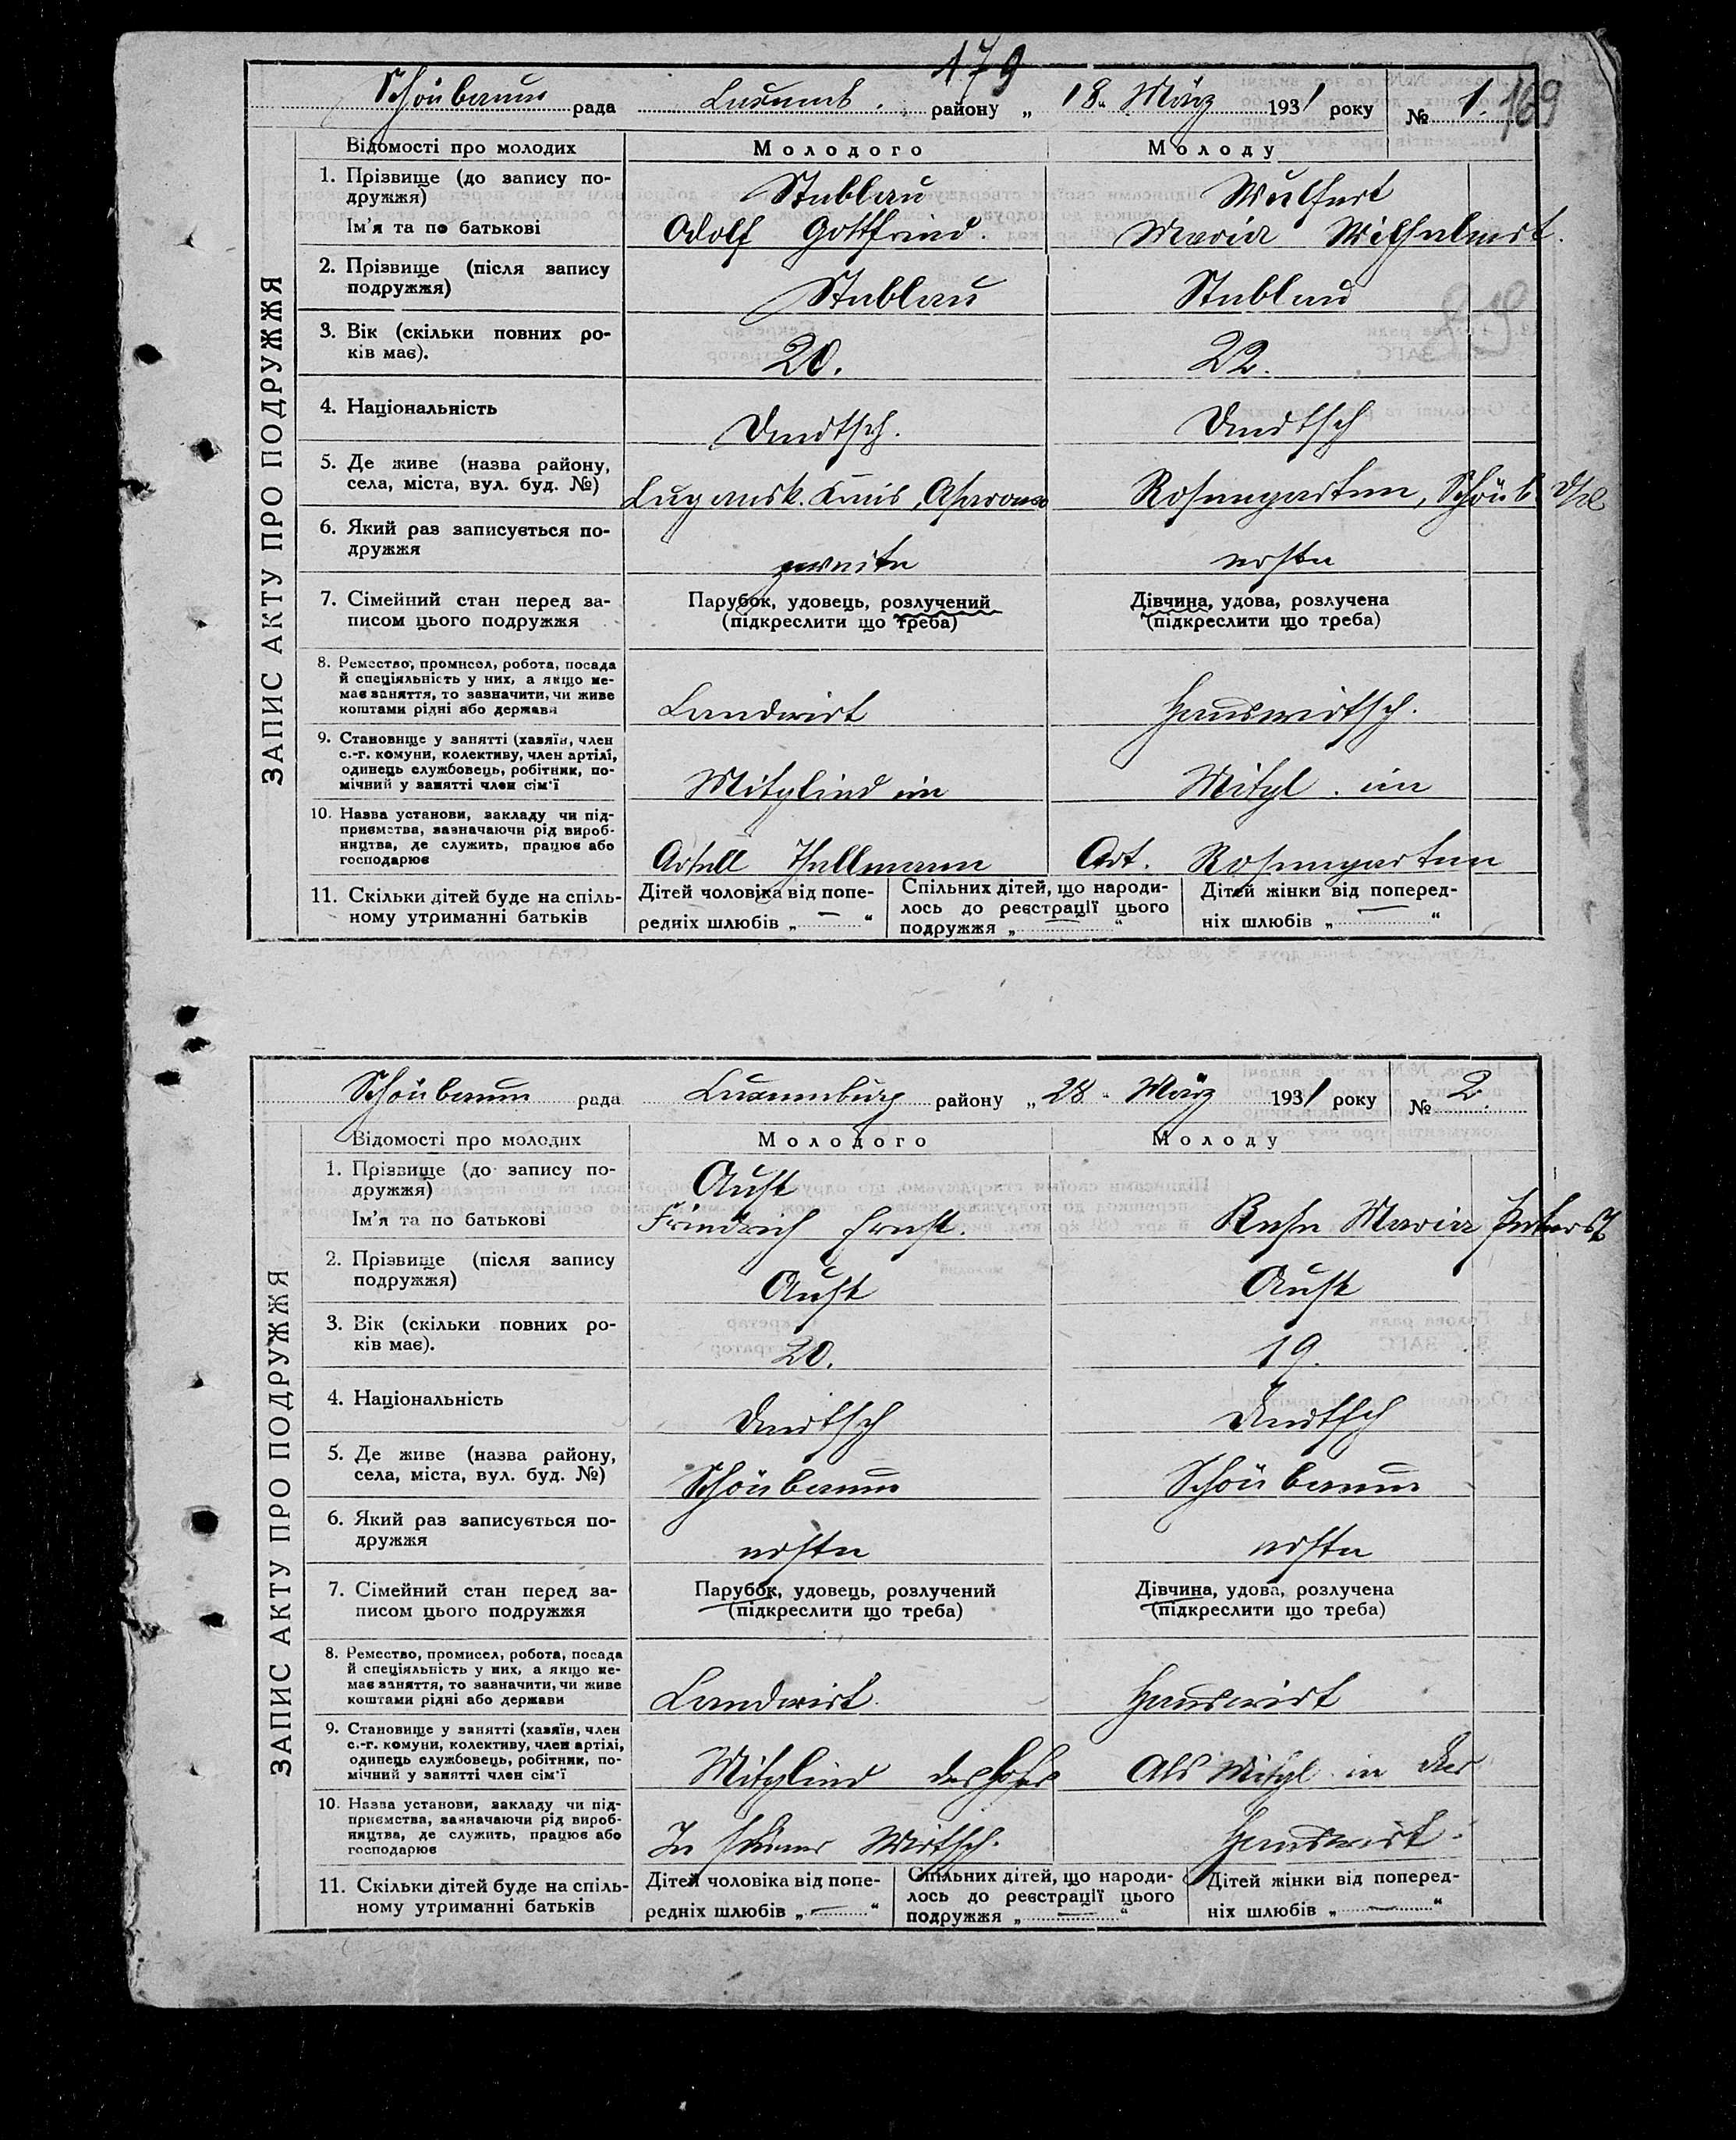 179
Schönbaum рада Luxemb. району „18" März 1931 року № 1. 169
Відомості про молодих Молодого Молоду
1. Прізвище (до запису подружжя) Steblau Wulfert
Ім'я та по батькові Adolf Gottfried. Maria Wilhelmst.
2. Прізвище (після запису подружжя) Steblau Steblau
3. Вік (скільки повних років має). 20. 22.
4. Національність Deutsch. Deutsch
5. Де живе (назва району, села, міста, вул. буд. №) Lugansk. Kreis, Rosengarten, Schönb.
6. Який раз записується подружжя zweite erste
7. Сімейний стан перед записом цього подружжя Парубок, удовець, розлучений (підкреслити що треба) Дівчина, удова, розлучена (підкреслити що треба)
8. Ремество, промисел, робота, посада й спеціяльність у них, а якщо немає заняття, то зазначити, чи живе коштами рідні або держави Landwirt Hauswirtsch.
9. Становище у занятті (хазяїн, член с.-г. комуни, колективу, член артілі, одинець службовець, робітник, помічний у занятті член сім'ї Mitglied im Mitgl. im
10. Назва установи, закладу чи підприємства, зазначаючи рід виробництва, де служить, працює або господарює Artell Thellmann Art. Rosengarten
11. Скільки дітей буде на спільному утриманні батьків Дітей чоловіка від попередніх шлюбів „—" Спільних дітей, що народилось до реєстрації цього подружжя „—" Дітей жінки від попередніх шлюбів „—"
ЗАПИС АКТУ ПРО ПОДРУЖЖЯ
Schönbaum рада Luxemburg району „28" März 1931 року № 2.
Відомості про молодих Молодого Молоду
1. Прізвище (до запису подружжя) Aust
Ім'я та по батькові Friedrich Ernst. Maria
2. Прізвище (після запису подружжя) Aust Aust
3. Вік (скільки повних років має). 20. 19.
4. Національність Deutsch Deutsch
5. Де живе (назва району, села, міста, вул. буд. №) Schönbaum Schönbaum
6. Який раз записується подружжя erste erste
7. Сімейний стан перед записом цього подружжя Парубок, удовець, розлучений (підкреслити що треба) Дівчина, удова, розлучена (підкреслити що треба)
8. Ремество, промисел, робота, посада й спеціяльність у них, а якщо немає заняття, то зазначити, чи живе коштами рідні або держави Landwirt. Hauswirt
9. Становище у занятті (хазяїн, член с.-г. комуни, колективу, член артілі, одинець службовець, робітник, помічний у занятті член сім'ї Mitglied des Hofes Als Mitgl. in der
10. Назва установи, закладу чи підприємства, зазначаючи рід виробництва, де служить, працює або господарює In seiner Wirtsch. Hauswirt.
11. Скільки дітей буде на спільному утриманні батьків Дітей чоловіка від попередніх шлюбів „—" Спільних дітей, що народилось до реєстрації цього подружжя „—" Дітей жінки від попередніх шлюбів „—"
ЗАПИС АКТУ ПРО ПОДРУЖЖЯ